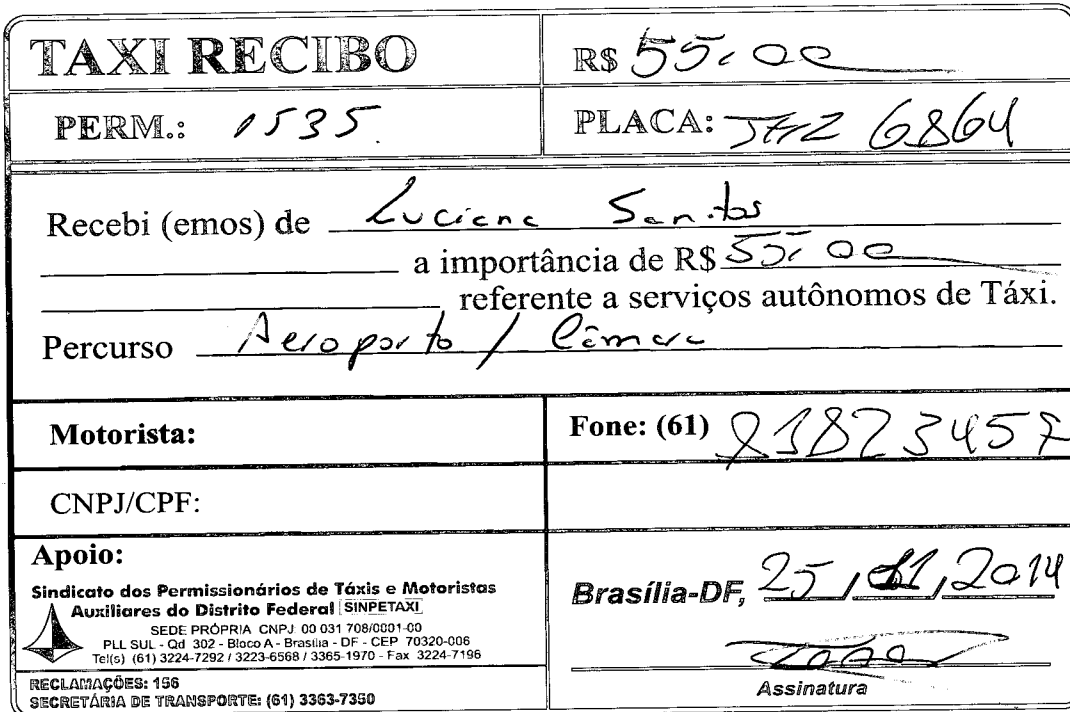 TAXI RECIBO
R$ 55,00
PERM.: 1535
PLACA: 6864
Recebi (emos) de Luciana Santos
a importância de R$ 55,00
referente a serviços autônomos de Táxi.
Percurso Aeroporto / Câmara
Motorista:
Fone: (61) 81823457
CNPJ/CPF:
Apoio:
Sindicato dos Permissionários de Táxis e Motoristas
Auxiliares do Distrito Federal SINPETAXI
SEDE PRÓPRIA CNPJ: 00 031 708/0001-00
PLL SUL - Qd 302 - Bloco A - Brasília - DF - CEP 70320-006
Tel(s) (61) 3224-7292 / 3223-6568 / 3365-1970 - Fax 3224-7196
RECLAMAÇÕES: 156
SECRETÁRIA DE TRANSPORTE: (61) 3363-7350
Brasília-DF, 25 / 11 / 2014
Assinatura